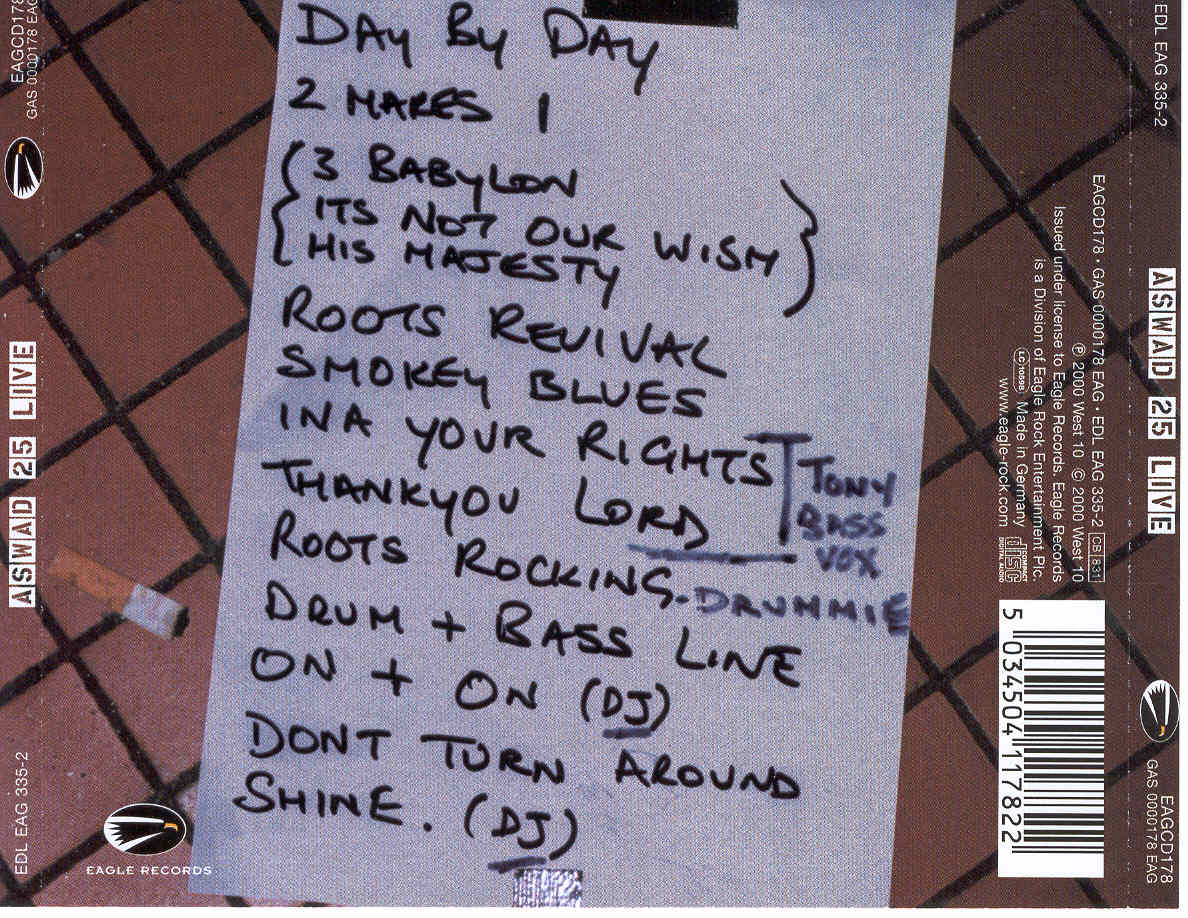 DAY BY DAY
2 MAKES 1
3 BABYLON
ITS NOT OUR WISH
HIS MAJESTY
ROOTS REVIVAL
SMOKEY BLUES
INA YOUR RIGHTS
THANKYOU LORD
TONY
BASS
VOX
ROOTS ROCKING. DRUMMIE
DRUM + BASS LINE
ON + ON (DJ)
DONT TURN AROUND
SHINE. (DJ)
EAGLE RECORDS
EAGCD178
GAS 0000178 EAG
ASWAD 25 LIVE
EDL EAG 335-2
EAGCD178 • GAS 0000178 EAG • EDL EAG 335-2 CB 831
℗ 2000 West 10 © 2000 West 10
Issued under license to Eagle Records. Eagle Records
is a Division of Eagle Rock Entertainment Plc.
LC 10598 Made in Germany
www.eagle-rock.com
COMPACT disc DIGITAL AUDIO
5 034504 117822
EDL EAG 335-2
ASWAD 25 LIVE
EAGCD178
GAS 0000178 EAG